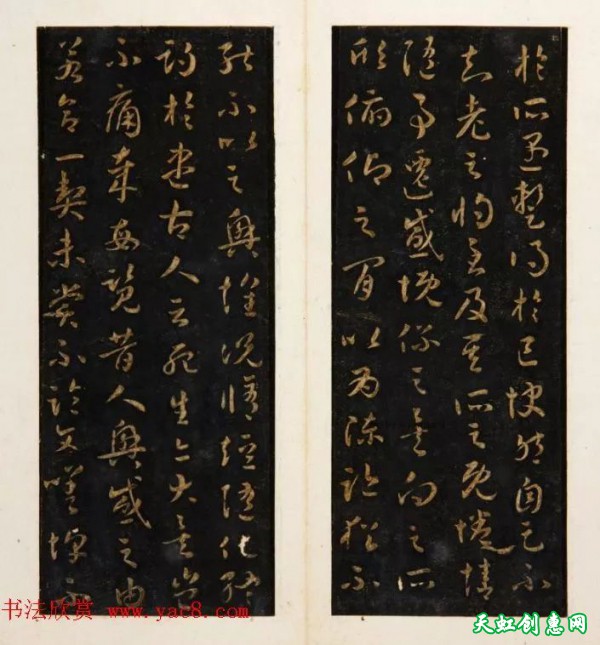 於所遇暫得於己快然自足不
知老之將至及其所之既惓情
隨事遷感慨係之矣向之所
欣俯仰之間以為陳迹猶不
能不以之興懷況脩短隨化終
期於盡古人云死生亦大矣豈
不痛哉每覽昔人興感之由
若合一契未嘗不臨文嗟悼
书法欣赏 www.yac8.com
天虹创惠网